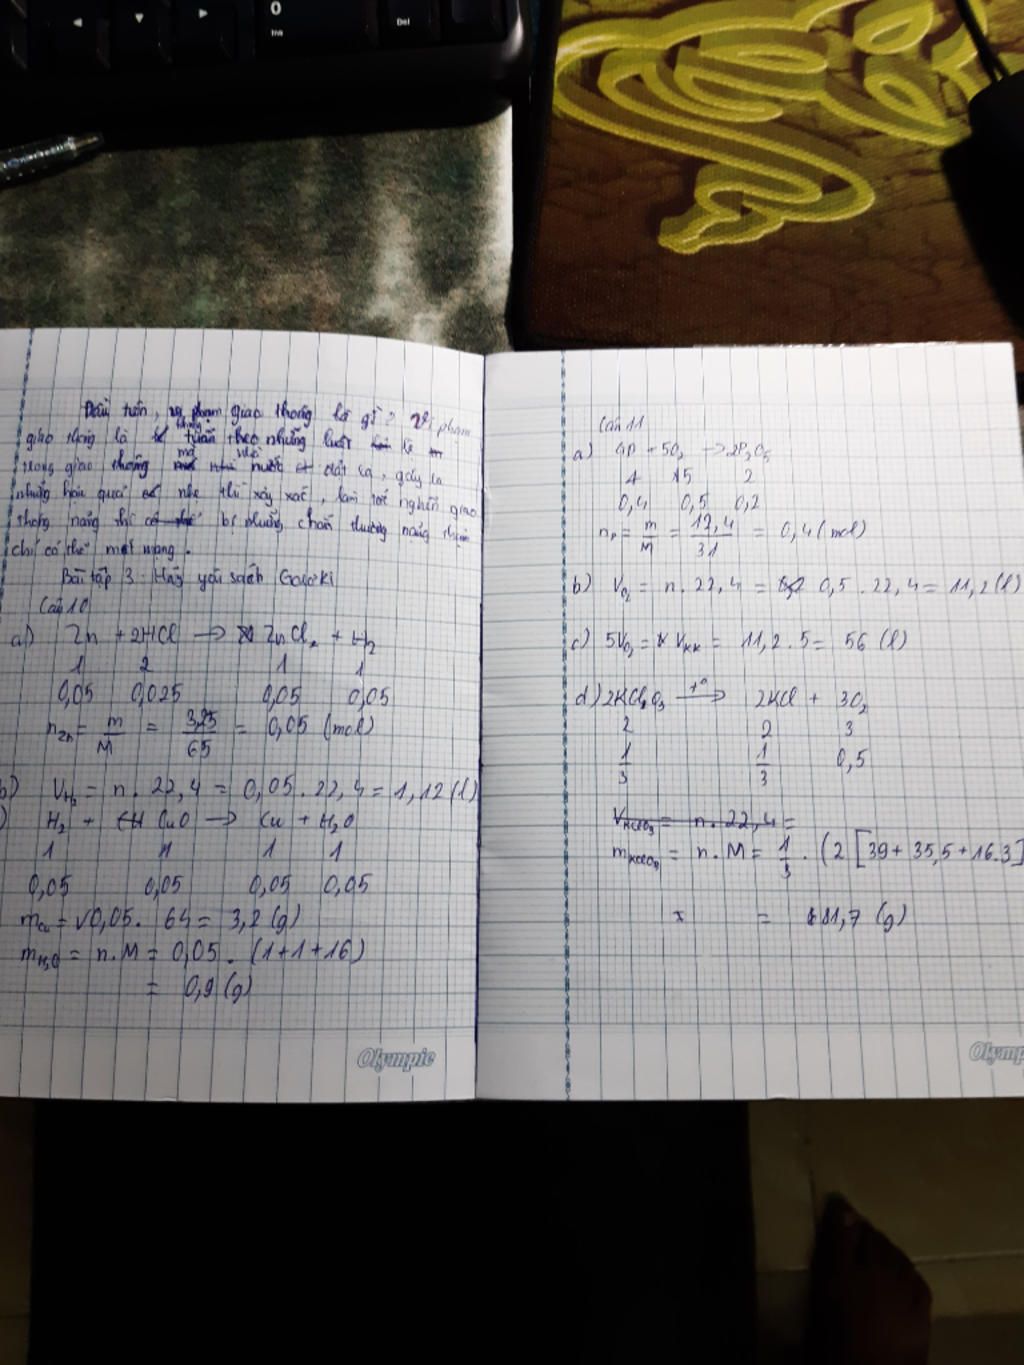 0
Ins
Del
Đầu tiên, vi phạm giao thông là gì? Vi phạm
giao thông là không tuân theo những luật lệ
trong giao thông mà nhà nước đặt ra, gây ra
những hậu quả như xảy, làm nghẽn giao
thông nặng thì bị thương, chấn thương nặng
chí có thể mất mạng.
Bài tập 3: Hãy yêu sách Goocki
Câu 10
a) Zn + 2HCl → ZnCl₂ + H₂
1 2 1 1
0,05 0,025 0,05 0,05
n_Zn = m/M = 3,25/65 = 0,05 (mol)
b) V_H₂ = n . 22,4 = 0,05 . 22,4 = 1,12 (l)
) H₂ + CuO → Cu + H₂O
1 1 1 1
0,05 0,05 0,05 0,05
m_Cu = 0,05 . 64 = 3,2 (g)
m_H₂O = n.M = 0,05 . (1+1+16)
= 0,9 (g)
Olympic
Câu 11
a) 4P + 5O₂ → 2P₂O₅
4 5 2
0,4 0,5 0,2
n_P = m/M = 12,4/31 = 0,4 (mol)
b) V_O₂ = n . 22,4 = 0,5 . 22,4 = 11,2 (l)
c) 5V_O₂ = V_KK = 11,2 . 5 = 56 (l)
d) 2KClO₃ →(t°) 2KCl + 3O₂
2 2 3
1/3 1/3 0,5
V_KClO₃ = n . 22,4 =
m_KClO₃ = n . M = 1/3 . (2 [39 + 35,5 + 16.3]
= 81,7 (g)
Olymp